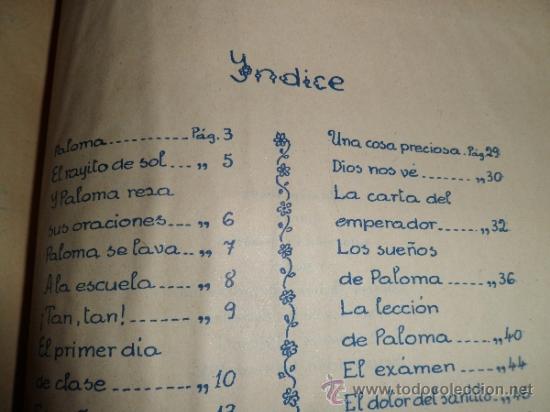 Yndice
Paloma........Pág. 3
El rayito de sol..„ 5
Y Paloma reza
sus oraciones....„ 6
Paloma se lava..„ 7
A la escuela.....„ 8
¡Tan, tan!......„ 9
El primer día
de clase........„ 10
Una cosa preciosa.Pág.29
Dios nos vé.....„30
La carta del
emperador.....„32
Los sueños
de Paloma....„36
La lección
de Paloma....„40
El exámen....„44
El dolor del
todocoleccion
www.todocoleccion.net